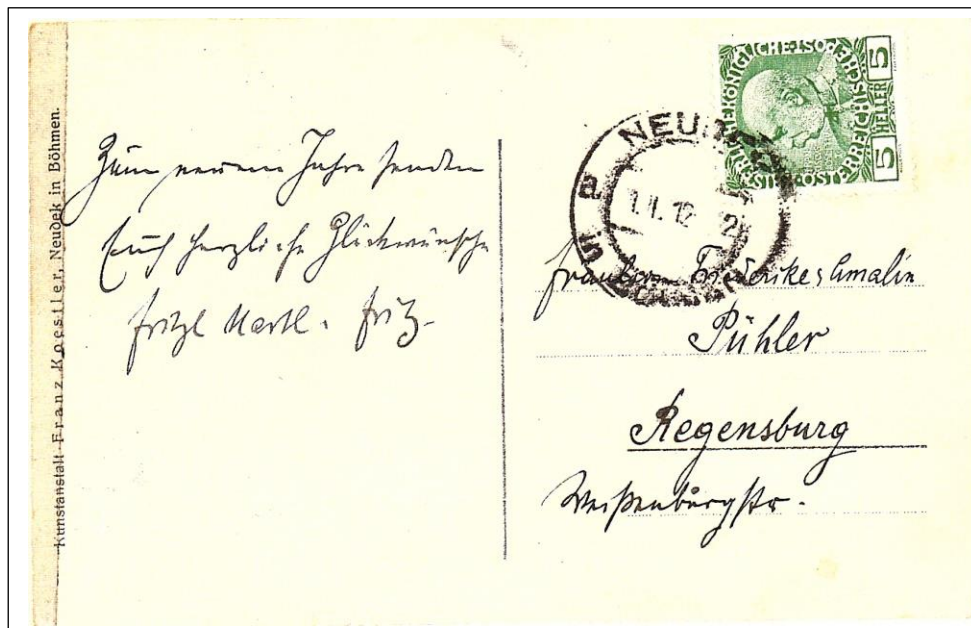 Kunstanstalt Franz Koestler, Neudek in Böhmen.
Zum neuen Jahre senden
Euch herzliche Glückwünsche
Fritzl Martl. Fritz.
KAISERLICHE KÖNIGLICHE ÖSTERREICHISCHE POST
5 HELLER 5
NEU
1.I.12
Friederike, Amalie
Pühler
Regensburg
Weißenburgstr.